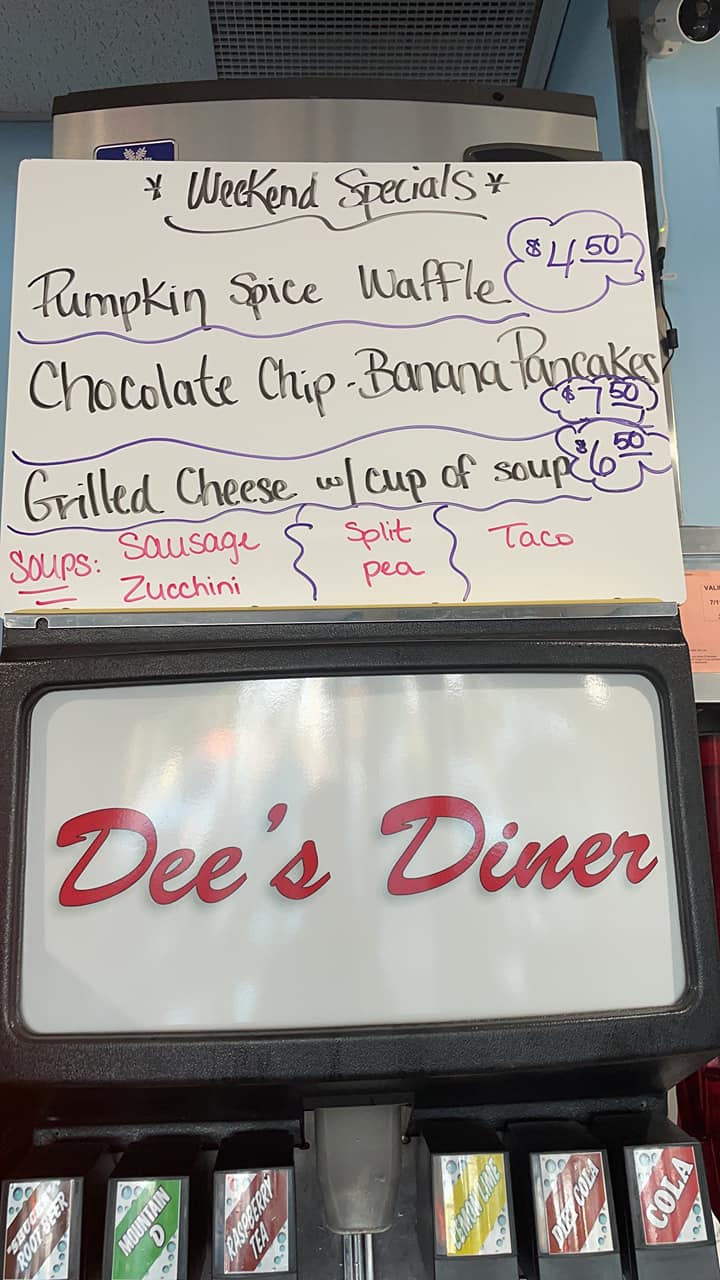 * Weekend Specials *
Pumpkin Spice Waffle $4.50
Chocolate Chip-Banana Pancakes
$7.50
Grilled Cheese w/ cup of soup $6.50
Soups: Sausage Zucchini
Split pea
Taco
VALI
7/1
Dee's Diner
ROOT BEER
MOUNTAIN D
RASPBERRY TEA
LEMON LIME
DIET COLA
COLA